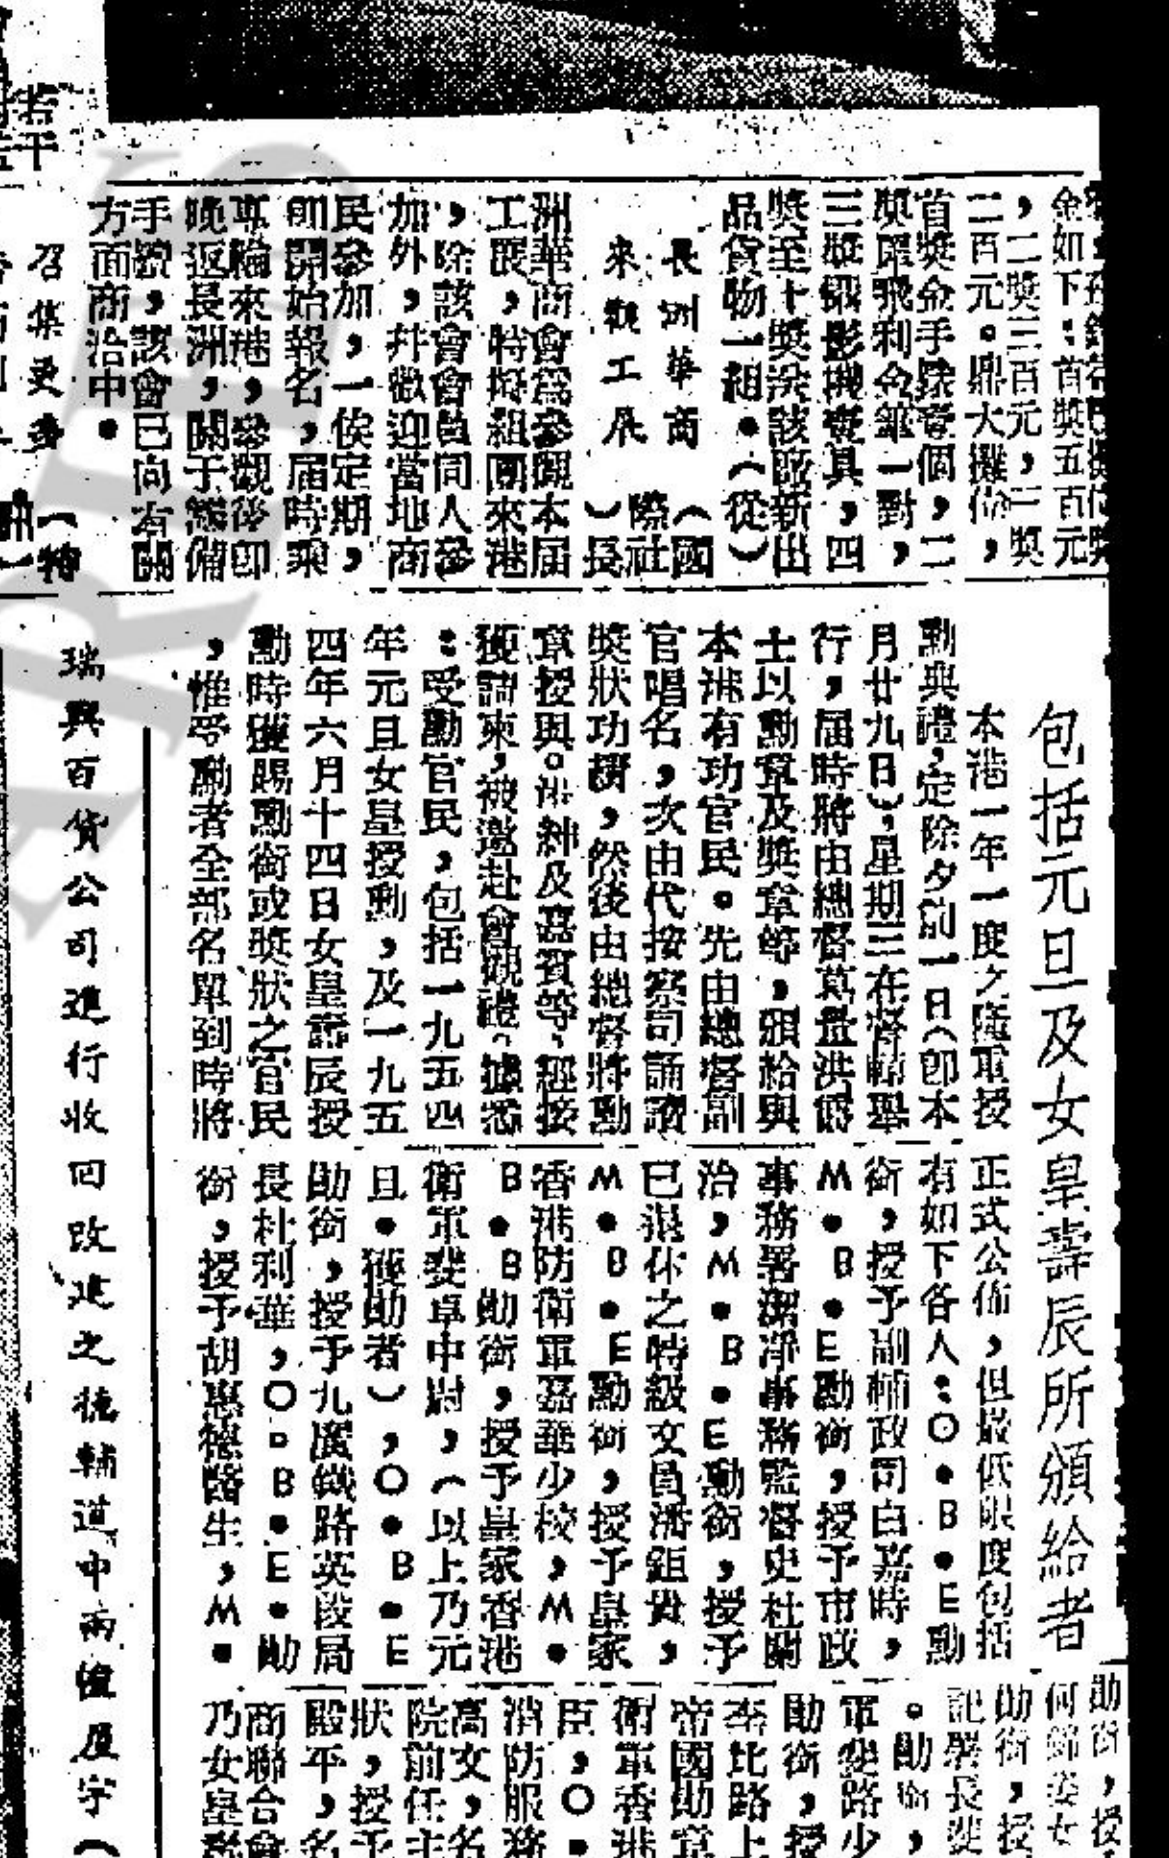 金如下：首獎五百元
，二獎三百元，三獎
二百元。鼎大攤位，
首獎金手鍊壹個，二
獎犀飛利金筆一對，
三獎攝影機壹具，四
獎至十獎該廠新出
品貨物一組。（從）
長洲華商
來觀工展
（國
際社
）長
洲華商會為參觀本屆
工展，特擬組團來港
，除該會會員同人參
加外，幷歡迎當地商
民參加，一俟定期，
即開始報名，屆時乘
專輪來港，參觀後即
晚返長洲，關于籌備
手續，該會已向有關
方面商洽中。
包括元旦及女皇壽辰所頒給者
本港一年一度之隆重授
勳典禮，定除夕前一日（即本
月廿九日），星期三在督轅舉
行，屆時將由總督葛量洪爵
士以勳章及獎章等，頒給與
本港有功官民。先由總督副
官唱名，次由代按察司誦讀
獎狀功績，然後由總督將勳
章授與。港紳及嘉賓等，經接
獲請柬，被邀赴會觀禮。據悉
：受勳官民，包括一九五四
年元旦女皇授勳，及一九五
四年六月十四日女皇壽辰授
勳時獲賜勳銜或獎狀之官民
，惟受勳者全部名單到時將
正式公佈，但最低限度包括
有如下各人：O·B·E勳
銜，授予副輔政司白嘉時，
M·B·E勳銜，授予市政
事務署潔淨事務監督史杜關
治，M·B·E勳銜，授予
已退休之特級文員潘鉅貴，
M·B·E勳銜，授予皇家
香港防衛軍嘉華少校，M·
B·B勛銜，授予皇家香港
衛軍斐卓中尉，（以上乃元
旦·獲勛者），O·B·E
勛銜，授予九廣鐵路英段局
長杜利華，O·B·E·勛
銜，授予胡惠德醫生，M·
勛銜，授
何錦姿女
勛銜，授
記署長
。勛銜，
軍少
勛銜，授
路上
帝國勛章
衛軍香港
臣，O·
消防服務
高文，名
院前任主
狀，授予
殿平，名
商聯合會
乃女皇
瑞興百貨公司進行收回改建之德輔道中兩幢屋宇（
召集更多
（特
若干